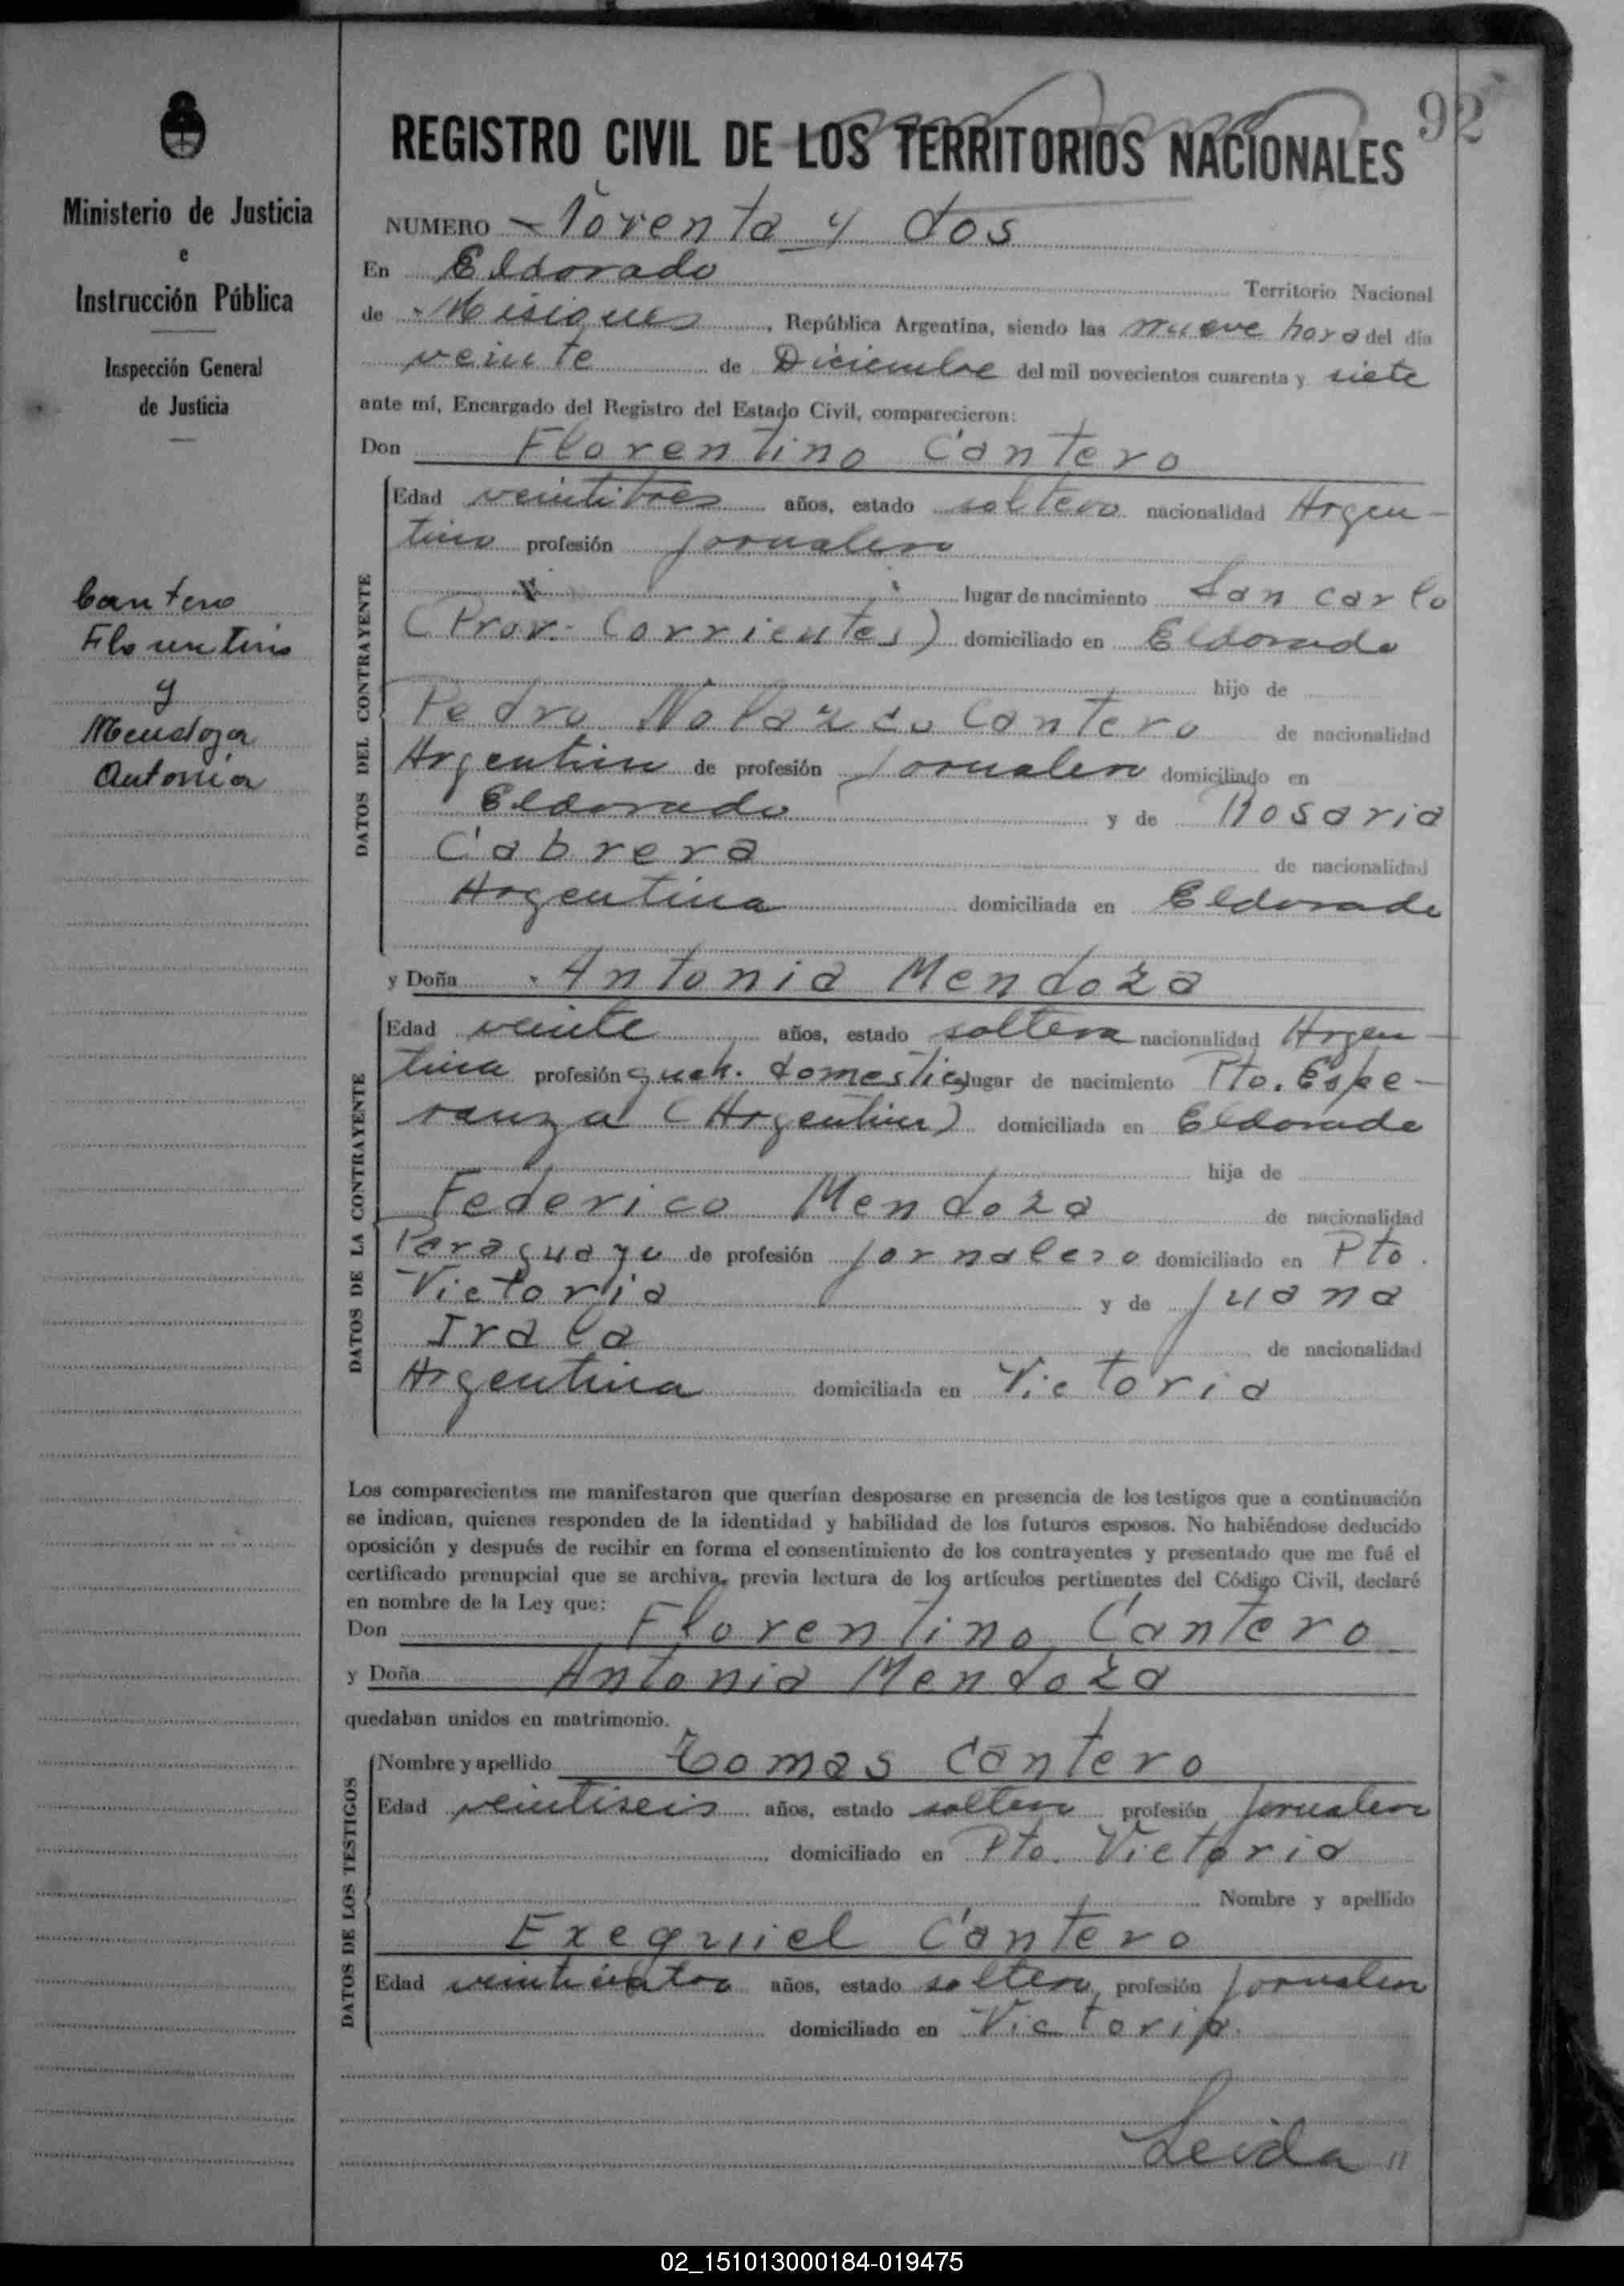 92
REGISTRO CIVIL DE LOS TERRITORIOS NACIONALES
Ministerio de Justicia
e
Instrucción Pública
Inspección General
de Justicia
Cantero
Florentino
y
Mendoza
Antonia
NUMERO - Noventa y dos
En Eldorado Territorio Nacional
de Misiones, República Argentina, siendo las nueve hora del día
veinte de Diciembre del mil novecientos cuarenta y siete
ante mí, Encargado del Registro del Estado Civil, comparecieron:
Don Florentino Cantero
DATOS DEL CONTRAYENTE
Edad veintitres años, estado soltero nacionalidad Argen-
tino profesión jornalero
lugar de nacimiento San Carlo
(Prov. Corrientes) domiciliado en Eldorado
hijo de
Pedro Nolazco Cantero de nacionalidad
Argentino de profesión jornalero domiciliado en
Eldorado y de Rosaria
Cabrera de nacionalidad
Argentina domiciliada en Eldorado
y Doña Antonia Mendoza
DATOS DE LA CONTRAYENTE
Edad veinte años, estado soltera nacionalidad Argen-
tina profesión domestic lugar de nacimiento Pto. Espe-
ranza (Argentina) domiciliada en Eldorado
hija de
Federico Mendoza de nacionalidad
Paraguayo de profesión jornalero domiciliado en Pto.
Victoria y de Juana
Irala de nacionalidad
Argentina domiciliada en Victoria
Los comparecientes me manifestaron que querían desposarse en presencia de los testigos que a continuación
se indican, quienes responden de la identidad y habilidad de los futuros esposos. No habiéndose deducido
oposición y después de recibir en forma el consentimiento de los contrayentes y presentado que me fué el
certificado prenupcial que se archiva, previa lectura de los artículos pertinentes del Código Civil, declaré
en nombre de la Ley que:
Don Florentino Cantero
y Doña Antonia Mendoza
quedaban unidos en matrimonio.
DATOS DE LOS TESTIGOS
Nombre y apellido Tomas Cantero
Edad veintiseis años, estado soltero profesión jornalero
domiciliado en Pto. Victoria
Nombre y apellido
Exequiel Cantero
Edad veinticuatro años, estado soltero, profesión jornalero
domiciliado en Victoria.
Leida "
02_151013000184-019475